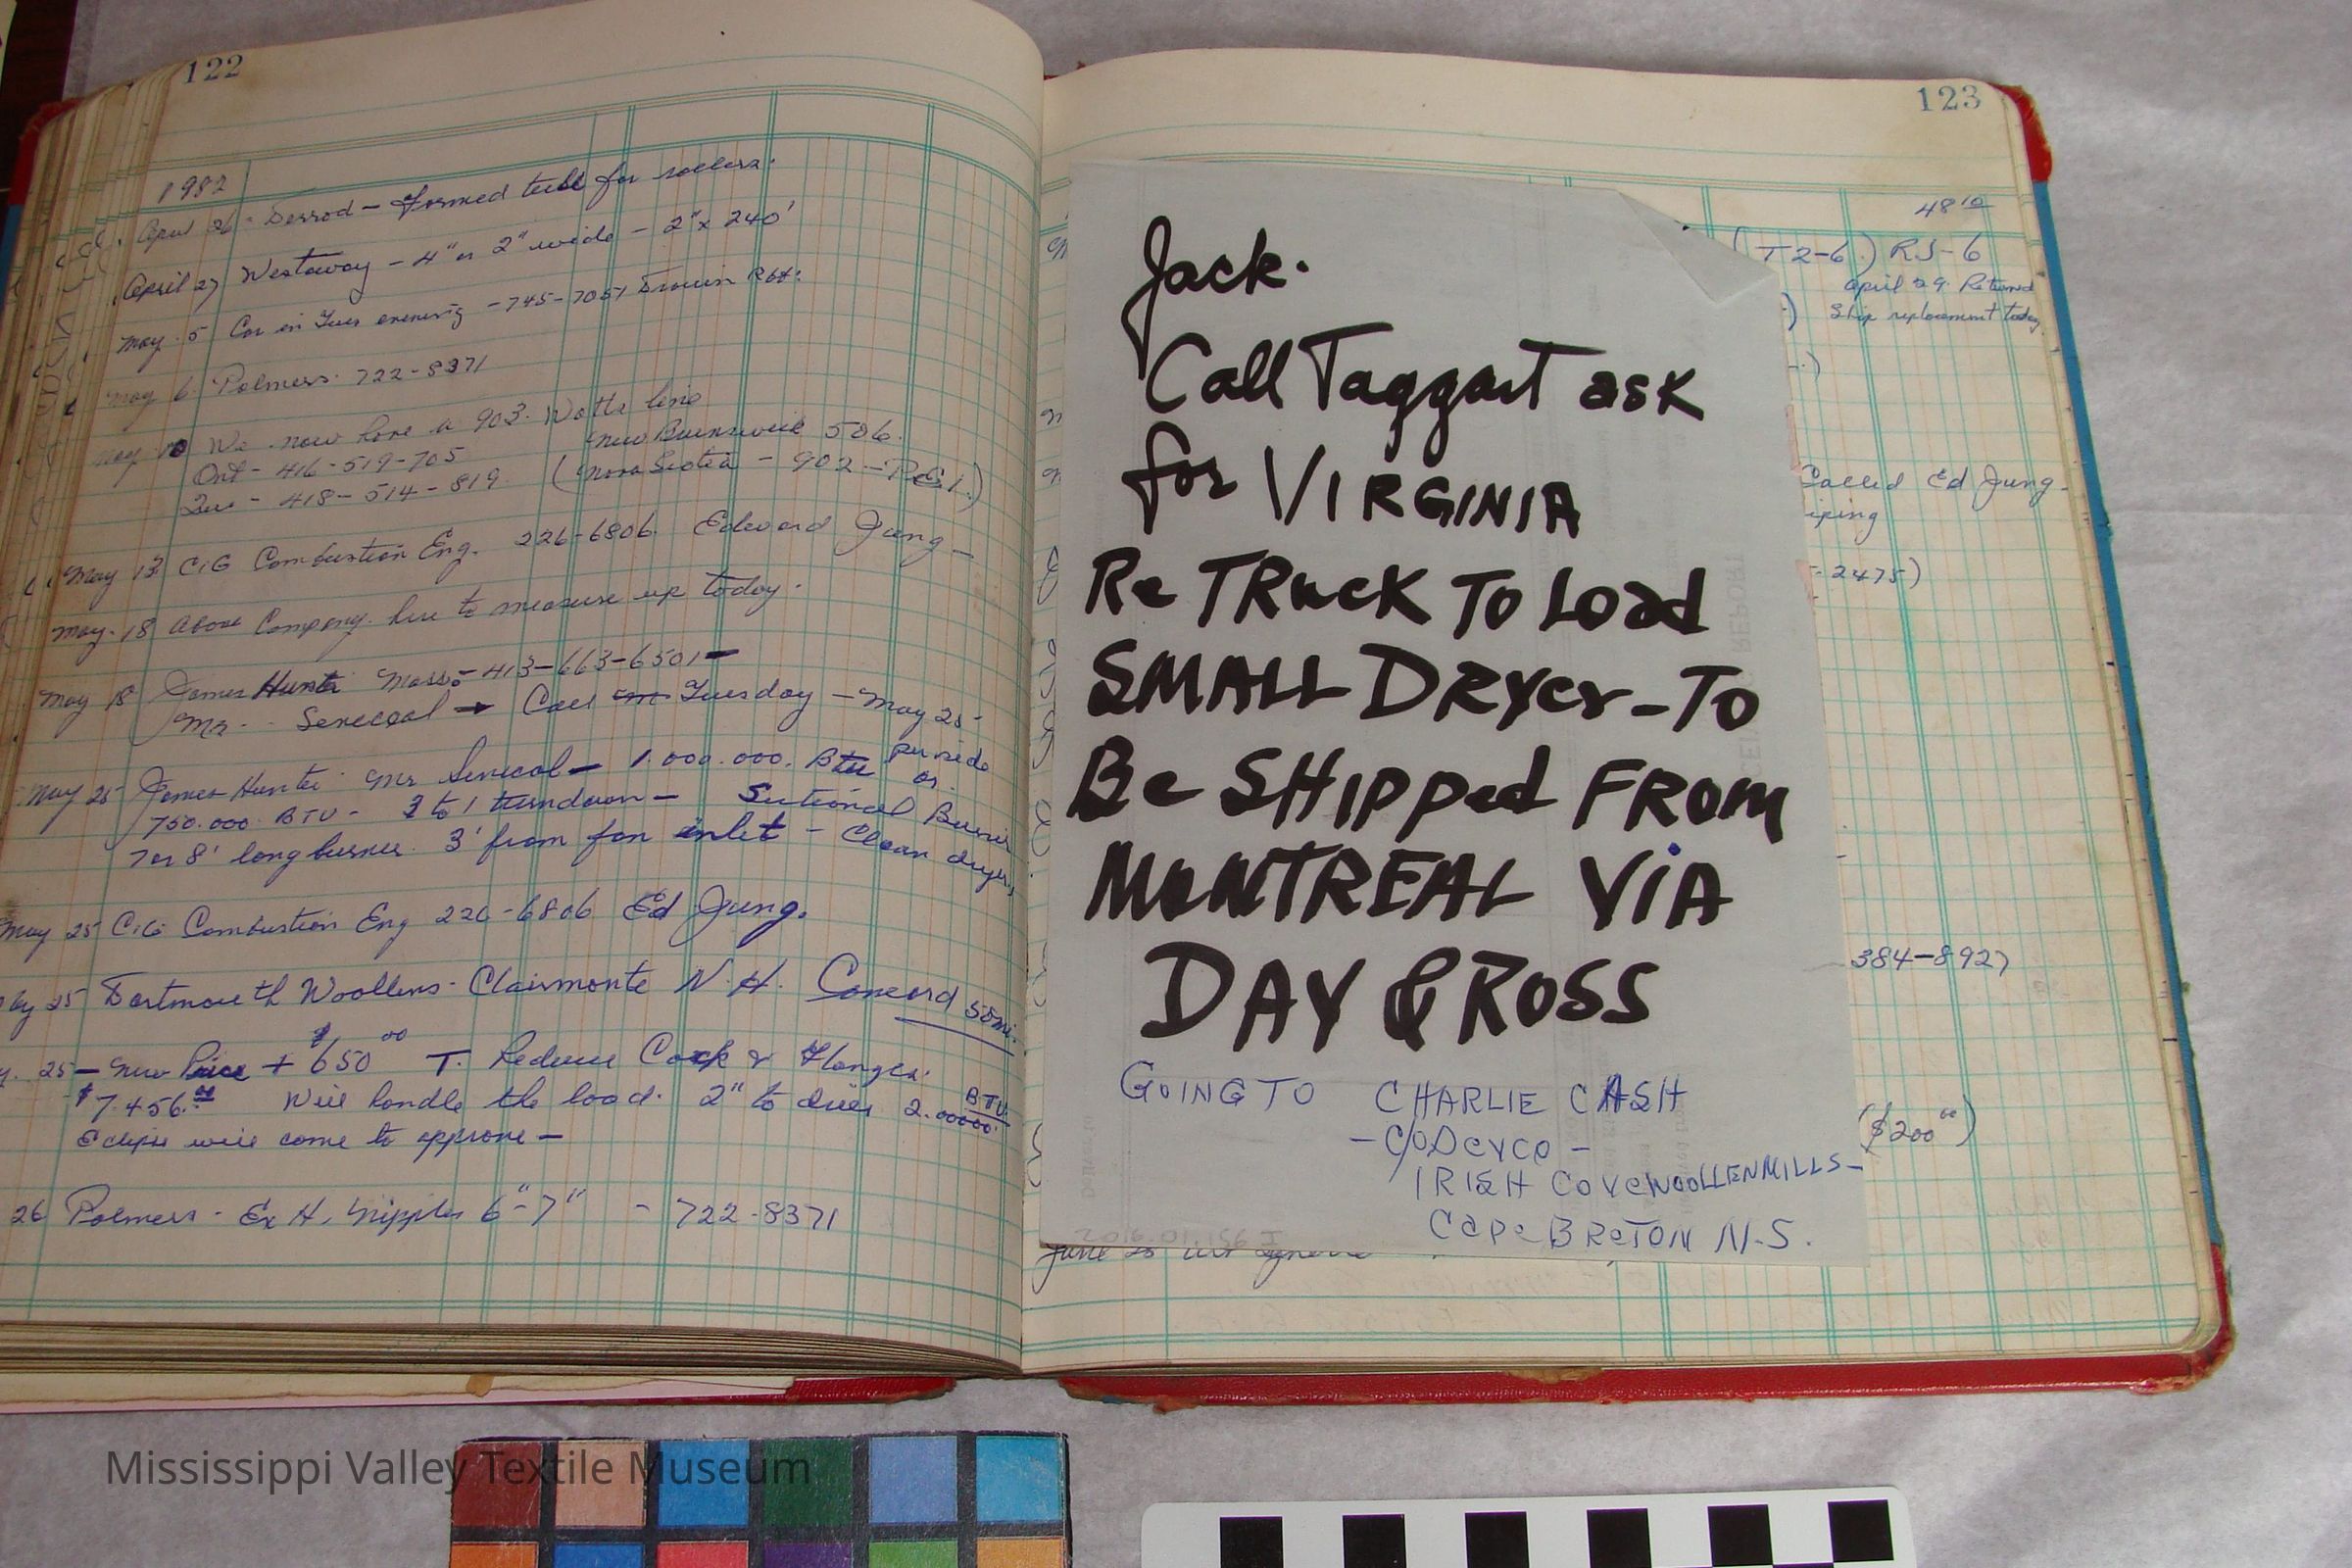 122
1982
April 26 - Derrod - formed tube for rollers.
April 27 Westaway - 4" or 2" wide - 2" x 240'
May 5 Car in Tues evening - 745-7051
May 6 Palmers 722-8371
May 10 We now have a 903. Watts line
Ont - 416-519-705 New Brunswick 506.
Que - 418-514-819 (Nova Scotia - 902 - P.E.I.)
May 13 C.G Combustion Eng. 226-6806. Edward Jung -
May. 18 Above Company. here to measure up today.
May 18 James Hunter Mass - 413-663-6501 -
Mr. Senecal → Call Tuesday - May 25 -
May 25 James Hunter Mr Senecal - 1.000.000. Btu per side or
750.000 BTU - 3 to 1 turndown - Sectional Burner
7 or 8' long burner. 3' from fan inlet - Clean dryer,
May 25 C.G. Combustion Eng 226-6806 Ed Jung.
25 Dartmouth Woollens - Clairmonte N.H. Concord 55 mi.
25 - New Price + $650 00 T. Reducer Cock & Flanges.
$7.456. Will handle the load. 2" to drier 2.00000 BTU.
Eclipse will come to approve -
26 Palmers - Ex H. Nipples 6"-7" - 722-8371
123
48 10
(T2-6) RJ-6
April 29 Returned
Ship replacement today
Called Ed Jung -
2475)
384-8927
($200 00)
Jack.
Call Taggart ask
for VIRGINIA
Re TRucK TO LOad
SMALL DRYer - TO
Be SHIPPed FROM
MONTREAL VIA
DAY & ROSS
GOING TO CHARLIE CASH
- CODeYCO -
IRISH COVe WOOLLENMILLS -
CaPe BReTON N.S.
2016.01.156 I
June 25
Mississippi Valley Textile Museum